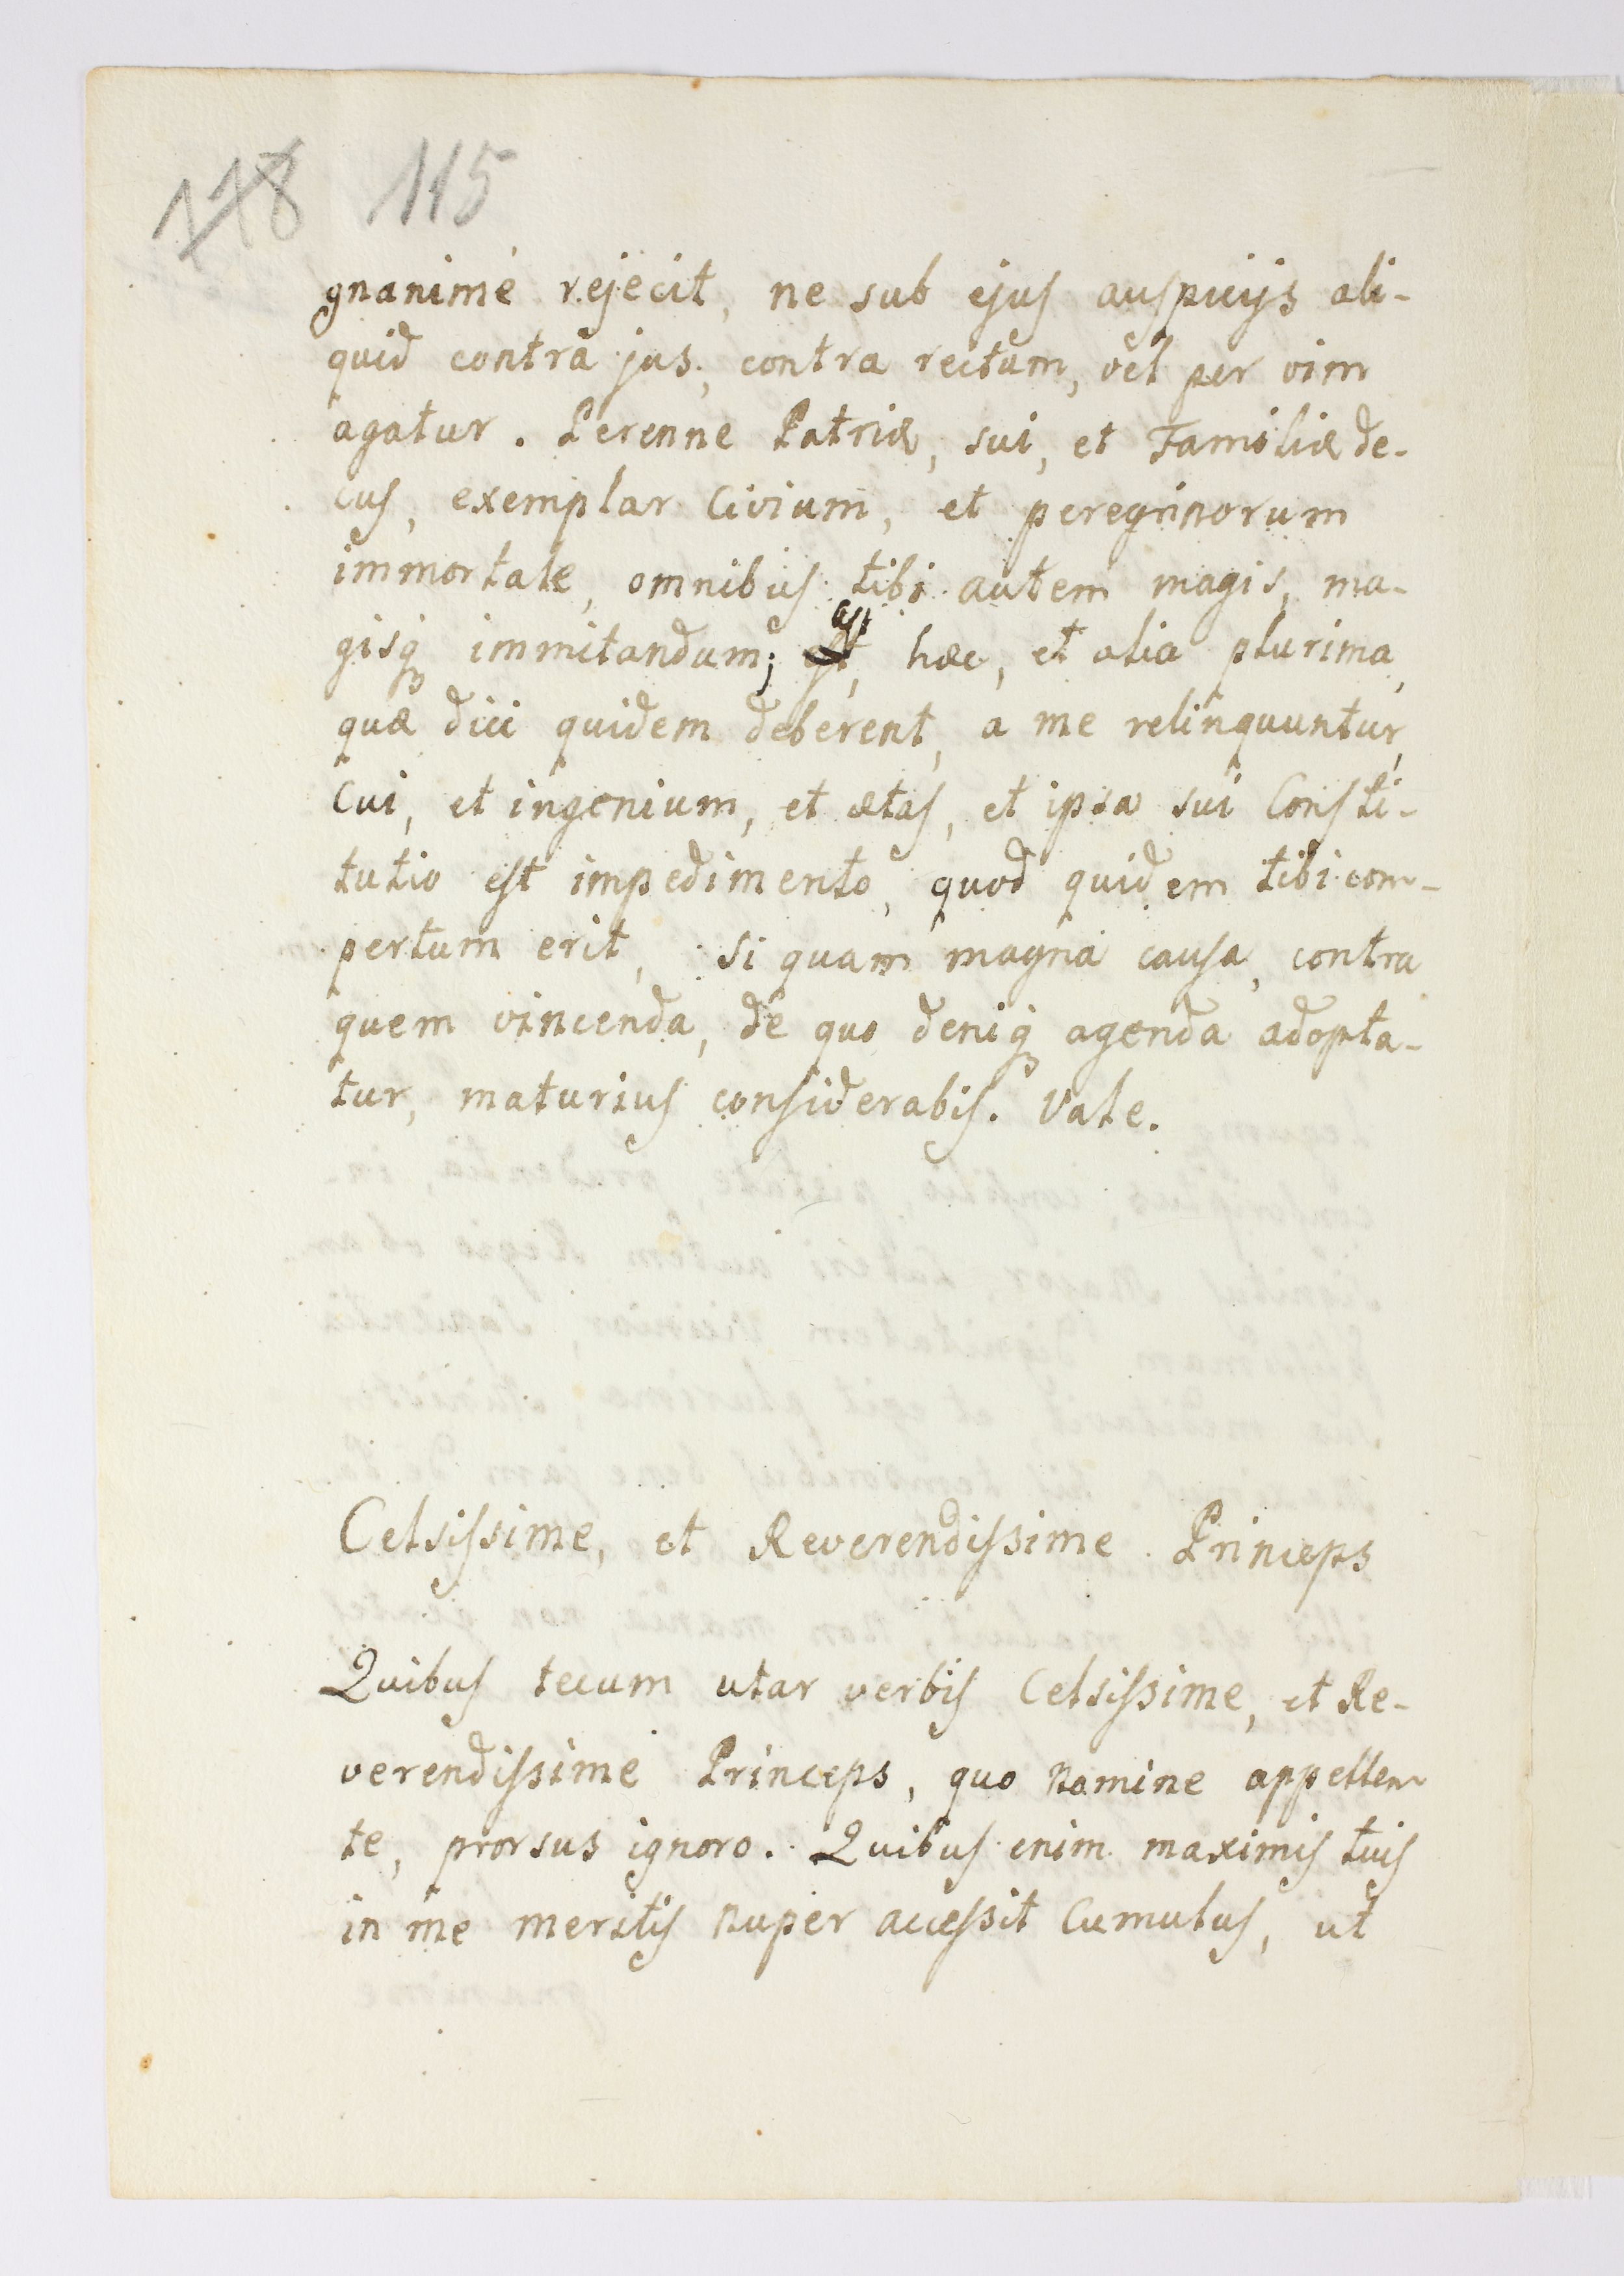 178 115
gnanimé rejecit, ne sub ejus auspicijs ali-
quid contra jus, contra rectum, vel per vim
agatur. Perenne Patriæ, sui, et Familiæ de-
cus, exemplar Civium, et peregrinorum
immortale, omnibus tibi autem magis, ma-
gisq́ immitandum; ast, hæc, et alia plurima,
quæ dici quidem deberent, a me relinquuntur,
Cui, et ingenium, et ætas, et ipsa sui Consti-
tutio est impedimento, quod quidem tibi com-
pertum erit, si quam magna causa, contra
quem vincenda, de quo deniq́ agenda adopta-
tur, maturius considerabis. Vale.
Celsissime, et Reverendissime Princeps
Quibus tecum utar verbis Celsissime, et Re-
verendissime Princeps, quo nomine appellem
te, prorsus ignoro. Quibus enim maximis tuis
in me meritis nuper accessit Cumulus, ut